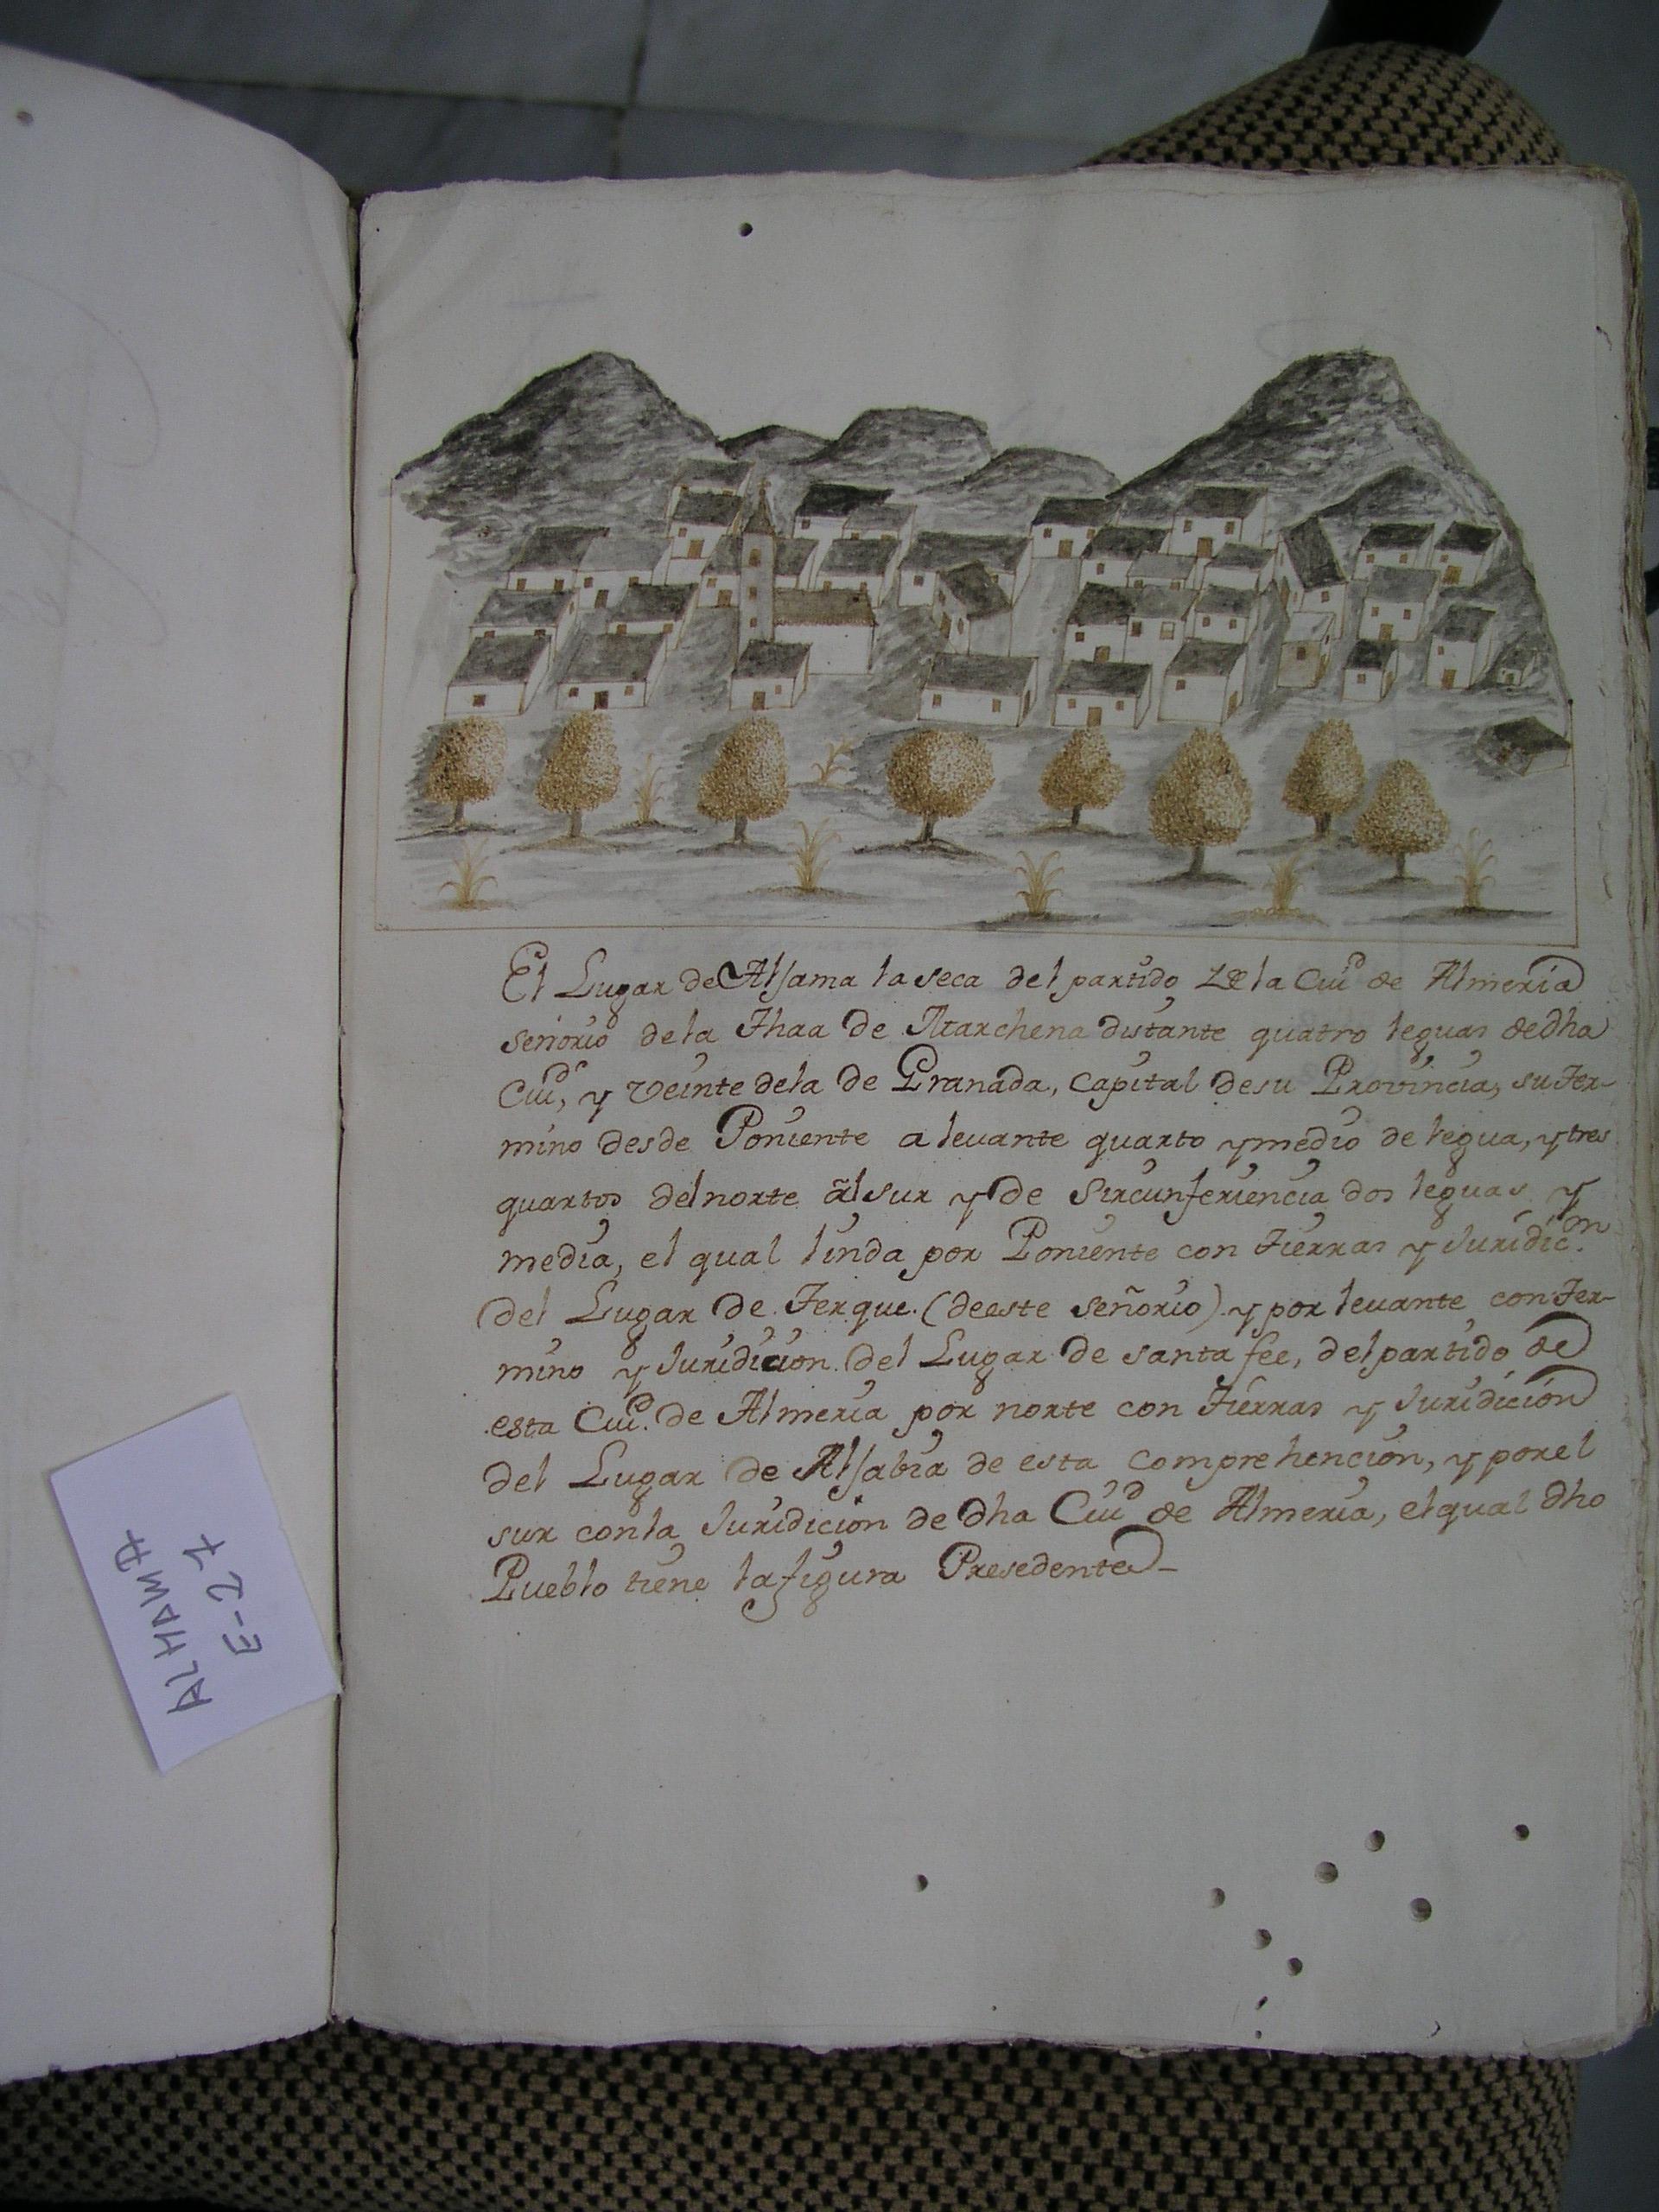 El Lugar de Alhama la seca del partido de la Ciud de Almeria
señorio de la Thaa de Marchena distante quatro leguas de dha
Ciud, y veinte de la de Granada, Capital de su Provincia, su Ter-
mino desde Poniente a levante quarto y medio de legua, y tres
quartos del norte al sur y de Sircunferiencia dos leguas y
media, el qual linda por Poniente con Tierras y Juridicon
del Lugar de Terque. (de este señorio) y por levante con Ter-
mino y Juridicion del Lugar de santa fee, del partido de
esta Ciud. de Almeria por norte con Tierras y Juridicion
del Lugar de Alhabia de esta Comprehencion, y por el
sur con la Juridicion de dha Ciud de Almeria, el qual dho
Pueblo tiene la figura Presedente-
ALHAMA
E-27